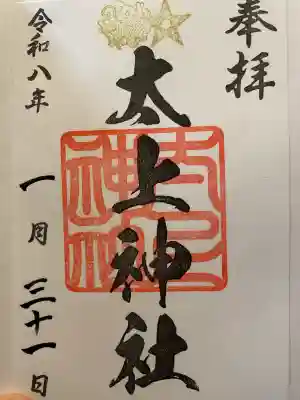 奉拝
太上神社
太上神社
令和八年
一月三十一日